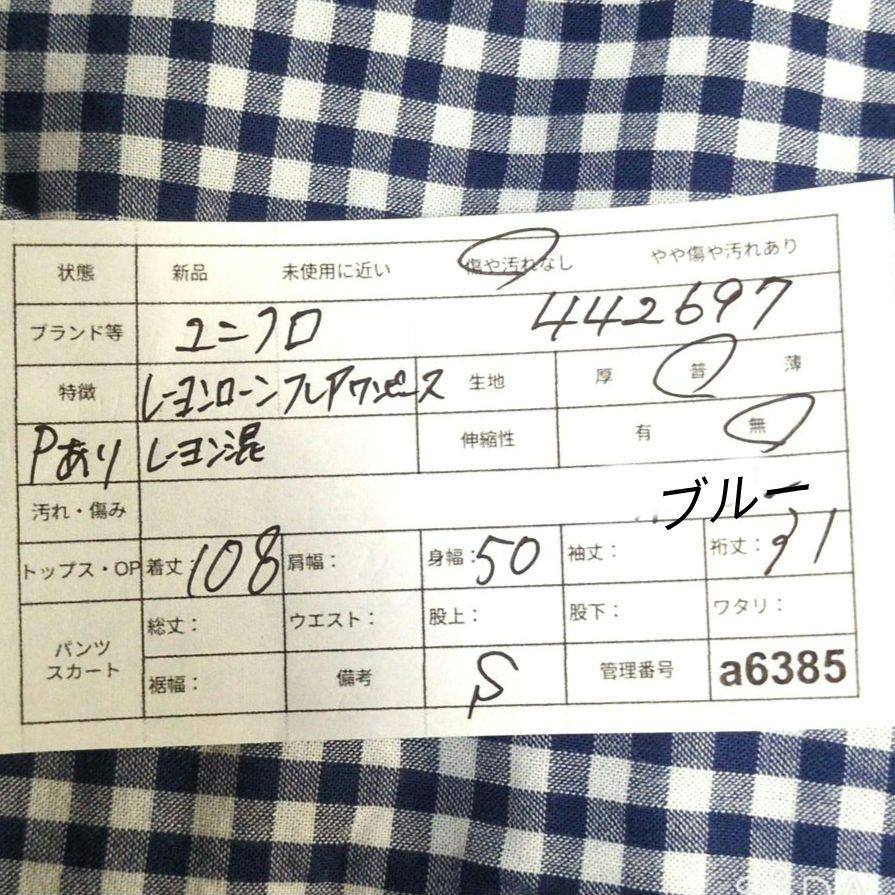 状態 新品 未使用に近い 傷や汚れなし やや傷や汚れあり
ブランド等 ユニクロ 442697
特徴 レーヨンローンフレアワンピース 生地 厚 普 薄
Pあり レーヨン混 伸縮性 有 無
汚れ・傷み ブルー
トップス・OP 着丈: 108 肩幅: 身幅: 50 袖丈: 裄丈:
パンツ スカート 総丈: ウエスト: 股上: 股下: ワタリ:
裾幅: 備考 S 管理番号 a6385